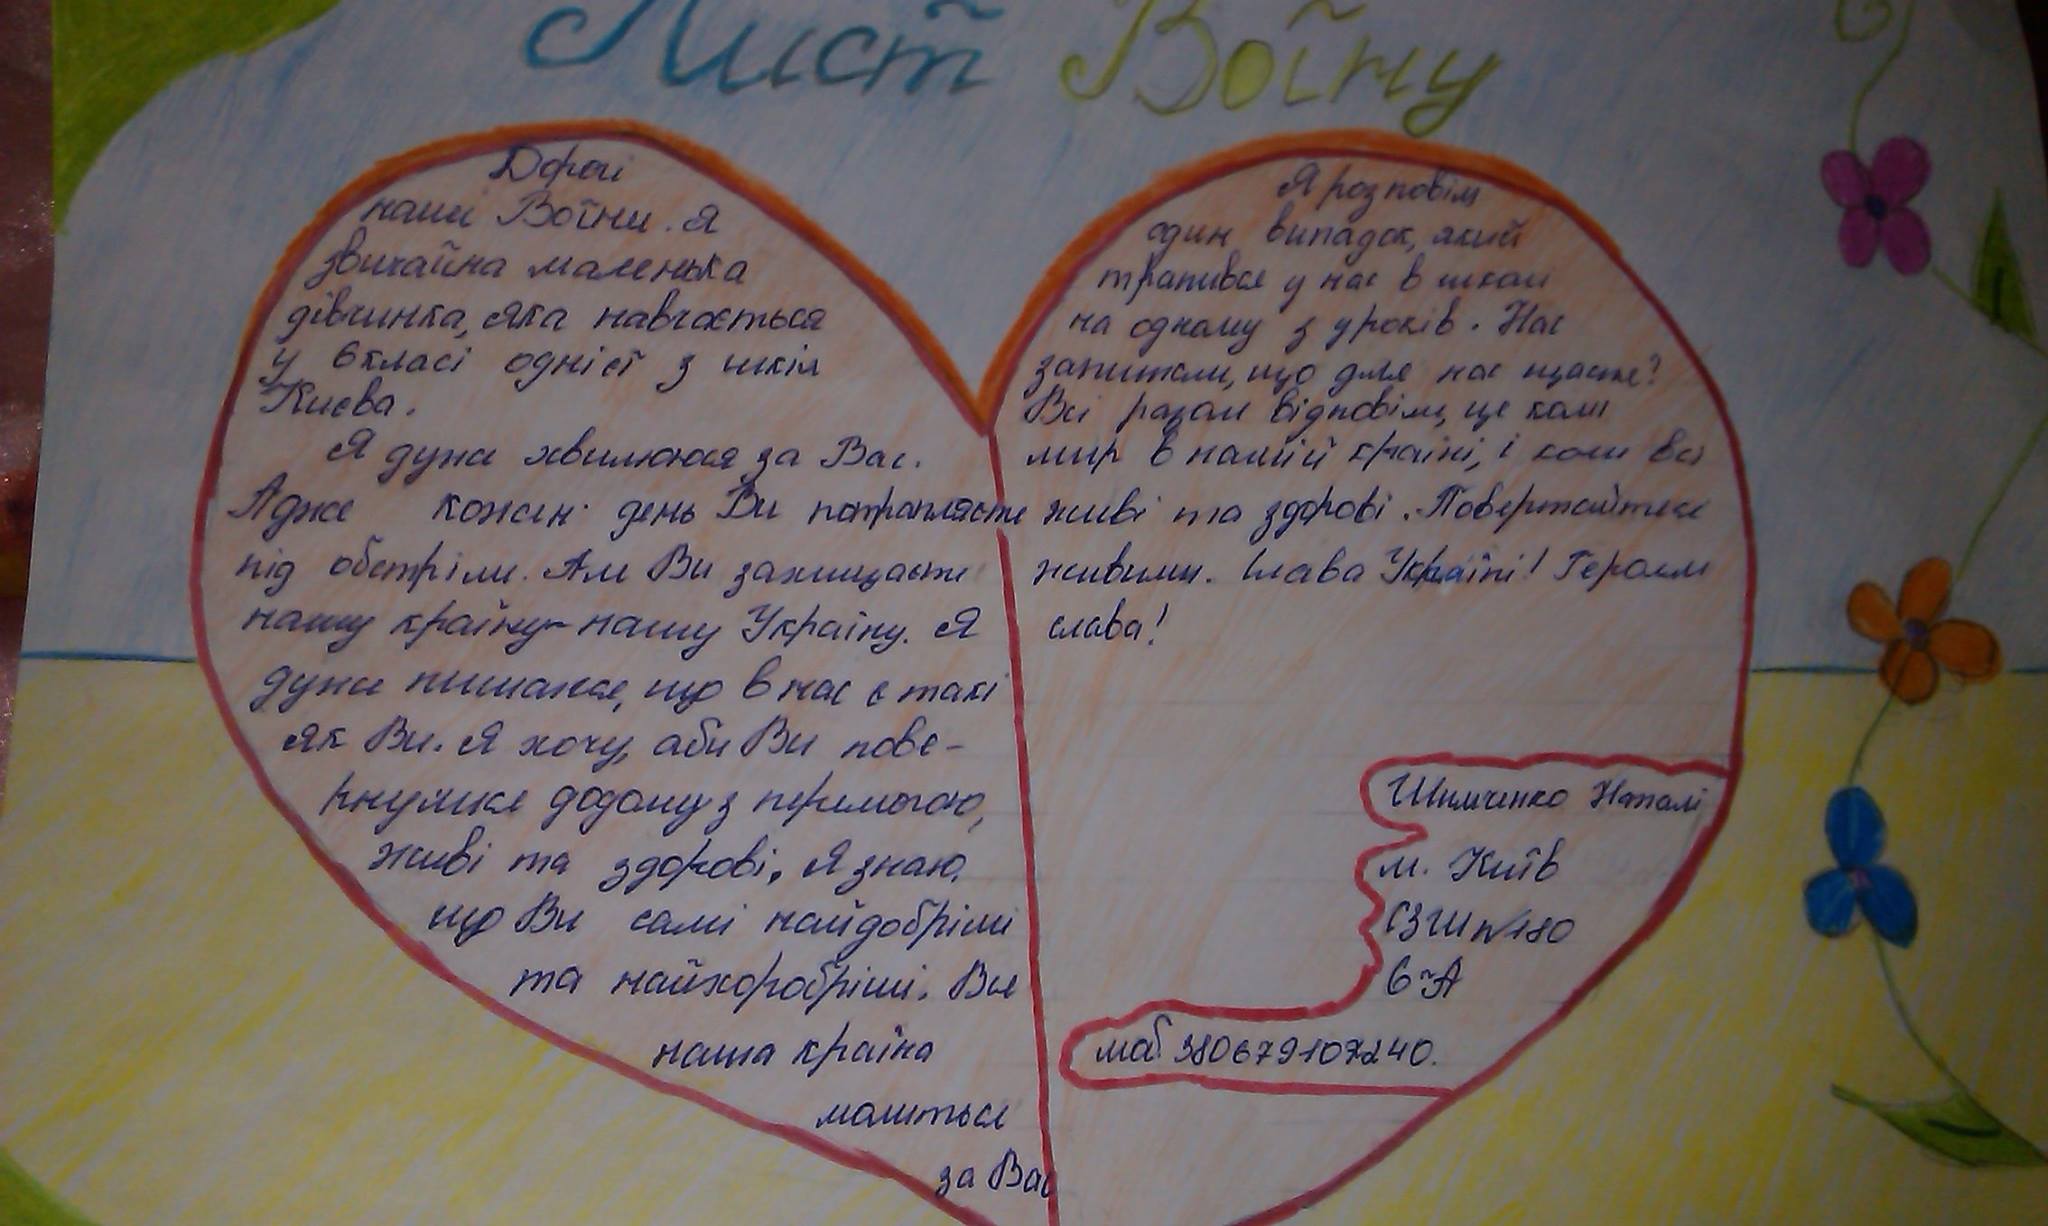 Лист Воїну
Дорогі
наші Воїни. Я
звичайна маленька
дівчинка, яка навчається
у 6 класі однієї з шкіл
Києва.
Я дуже хвилююся за Вас.
Адже кожен день Ви потрапляєте
під обстріли. Але Ви захищаєте
нашу країну - нашу Україну. Я
дуже пишаюся, що в нас є такі
як Ви. Я хочу, аби Ви пове-
рнулися додому з перемогою,
живі та здорові. Я знаю,
що Ви самі найдобріші
та найхоробріші. Вся
наша країна
молиться
за Вас
Я розповім
один випадок, який
трапився у нас в школі
на одному з уроків. Нас
запитали, що для нас щастя?
Всі разом відповіли, це коли
мир в нашій країні, і коли всі
живі та здорові. Повертайтеся
живими. Слава Україні! Героям
слава!
Шимченко Наталі
м. Київ
СЗШ №180
6-А
моб. 380679107240.